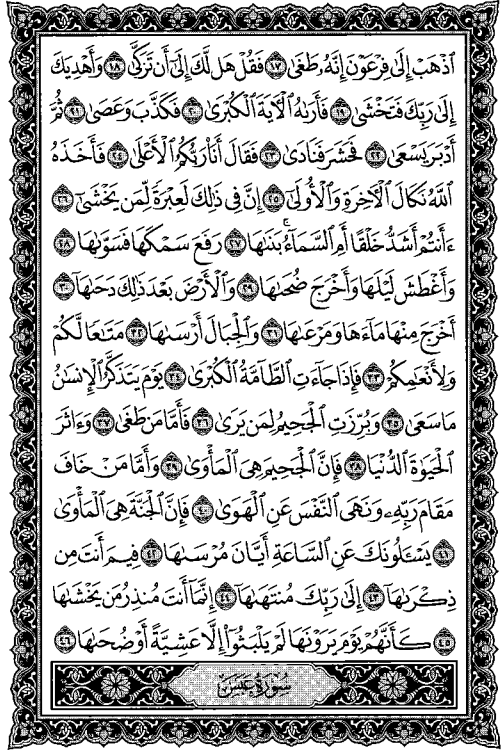 ٱذۡهَبۡ إِلَىٰ فِرۡعَوۡنَ إِنَّهُۥ طَغَىٰ ١٧ فَقُلۡ هَل لَّكَ إِلَىٰٓ أَن تَزَكَّىٰ ١٨ وَأَهۡدِيَكَ
إِلَىٰ رَبِّكَ فَتَخۡشَىٰ ١٩ فَأَرَىٰهُ ٱلۡأٓيَةَ ٱلۡكُبۡرَىٰ ٢٠ فَكَذَّبَ وَعَصَىٰ ٢١ ثُمَّ
أَدۡبَرَ يَسۡعَىٰ ٢٢ فَحَشَرَ فَنَادَىٰ ٢٣ فَقَالَ أَنَا۠ رَبُّكُمُ ٱلۡأَعۡلَىٰ ٢٤ فَأَخَذَهُ
ٱللَّهُ نَكَالَ ٱلۡأٓخِرَةِ وَٱلۡأُولَىٰٓ ٢٥ إِنَّ فِي ذَٰلِكَ لَعِبۡرَةٗ لِّمَن يَخۡشَىٰٓ ٢٦
ءَأَنتُمۡ أَشَدُّ خَلۡقًا أَمِ ٱلسَّمَآءُۚ بَنَىٰهَا ٢٧ رَفَعَ سَمۡكَهَا فَسَوَّىٰهَا ٢٨
وَأَغۡطَشَ لَيۡلَهَا وَأَخۡرَجَ ضُحَىٰهَا ٢٩ وَٱلۡأَرۡضَ بَعۡدَ ذَٰلِكَ دَحَىٰهَآ ٣٠
أَخۡرَجَ مِنۡهَا مَآءَهَا وَمَرۡعَىٰهَا ٣١ وَٱلۡجِبَالَ أَرۡسَىٰهَا ٣٢ مَتَٰعٗا لَّكُمۡ
وَلِأَنۡعَٰمِكُمۡ ٣٣ فَإِذَا جَآءَتِ ٱلطَّآمَّةُ ٱلۡكُبۡرَىٰ ٣٤ يَوۡمَ يَتَذَكَّرُ ٱلۡإِنسَٰنُ
مَا سَعَىٰ ٣٥ وَبُرِّزَتِ ٱلۡجَحِيمُ لِمَن يَرَىٰ ٣٦ فَأَمَّا مَن طَغَىٰ ٣٧ وَءَاثَرَ
ٱلۡحَيَوٰةَ ٱلدُّنۡيَا ٣٨ فَإِنَّ ٱلۡجَحِيمَ هِيَ ٱلۡمَأۡوَىٰ ٣٩ وَأَمَّا مَنۡ خَافَ
مَقَامَ رَبِّهِۦ وَنَهَى ٱلنَّفۡسَ عَنِ ٱلۡهَوَىٰ ٤٠ فَإِنَّ ٱلۡجَنَّةَ هِيَ ٱلۡمَأۡوَىٰ
٤١ يَسۡـَٔلُونَكَ عَنِ ٱلسَّاعَةِ أَيَّانَ مُرۡسَىٰهَا ٤٢ فِيمَ أَنتَ مِن
ذِكۡرَىٰهَآ ٤٣ إِلَىٰ رَبِّكَ مُنتَهَىٰهَآ ٤٤ إِنَّمَآ أَنتَ مُنذِرُ مَن يَخۡشَىٰهَا
٤٥ كَأَنَّهُمۡ يَوۡمَ يَرَوۡنَهَا لَمۡ يَلۡبَثُوٓاْ إِلَّا عَشِيَّةً أَوۡ ضُحَىٰهَا ٤٦
سُورَةُ عَبَسَ